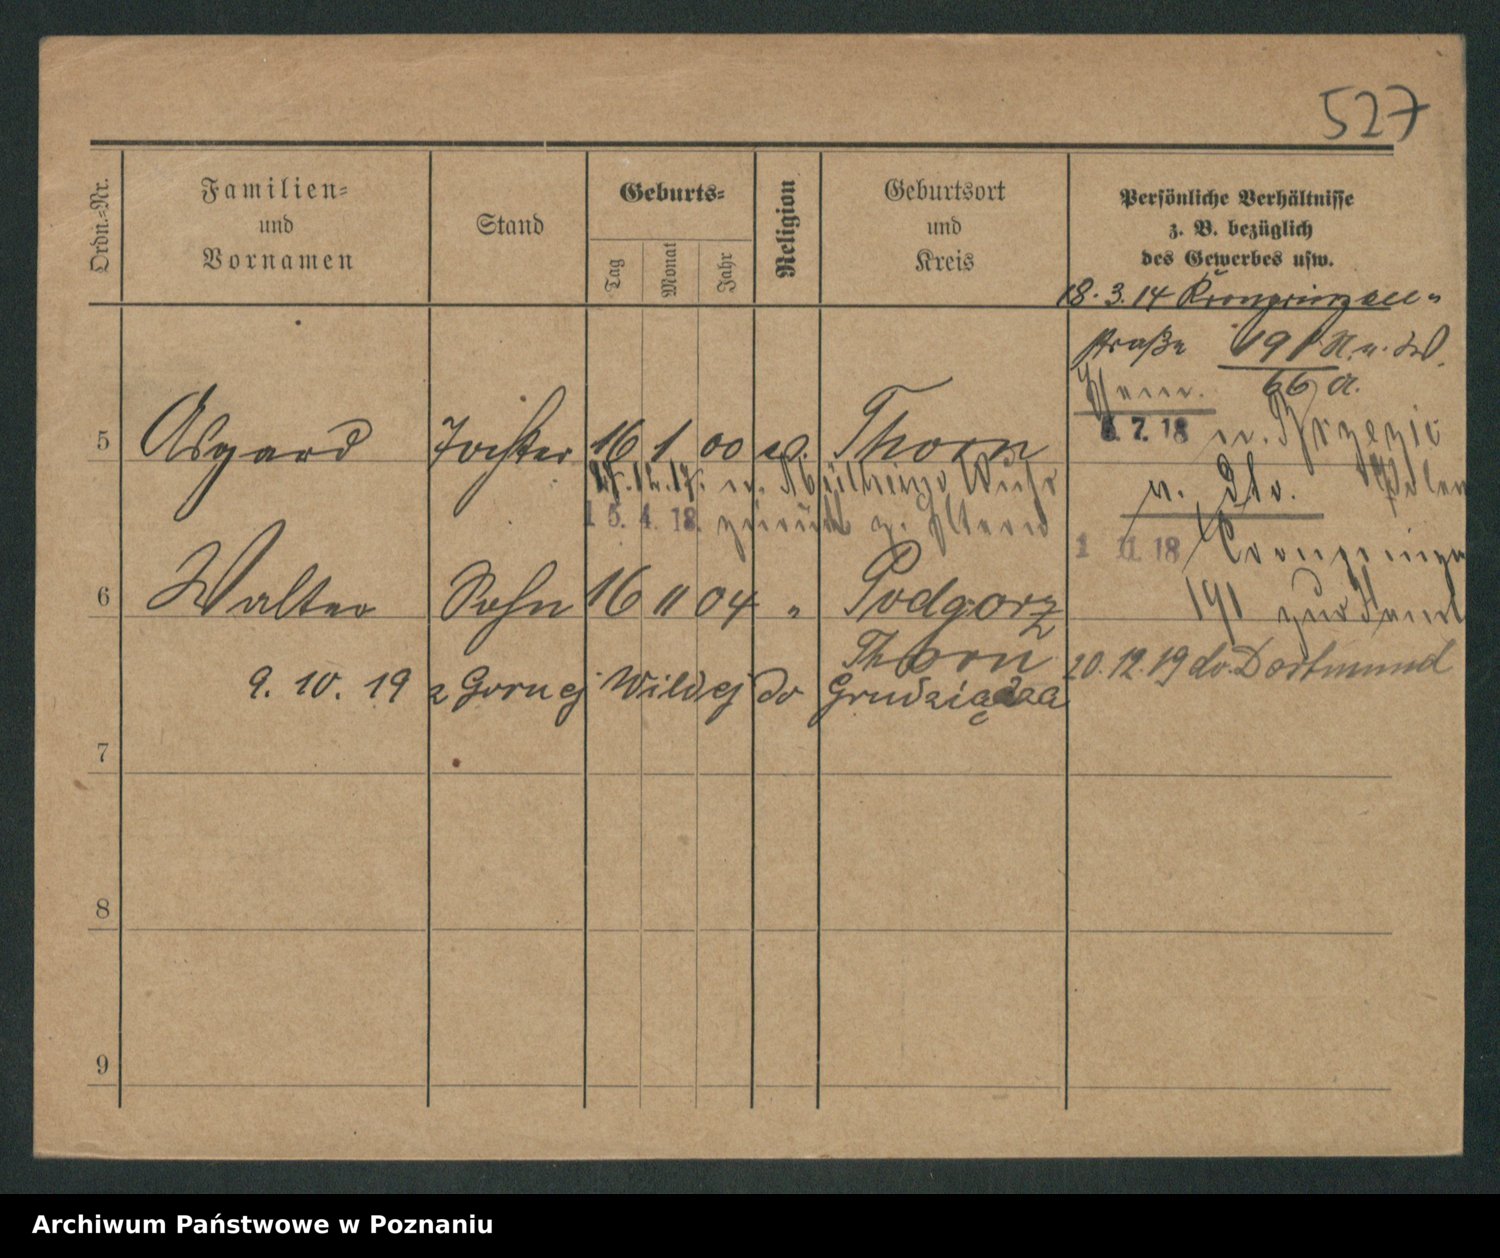 527
Ordn.-Nr.
Familien-
und
Vornamen
Stand
Geburts-
Tag
Monat
Jahr
Religion
Geburtsort
und
Kreis
Persönliche Verhältnisse
z. B. bezüglich
des Gewerbes usw.
18. 3. 14 Kronprinzen-
straße 191
66
5 Asgard Tochter 16 1 00 ev. Thorn
7. 18
n.
15. 4. 18. zurück z. Eltern
1 11. 18 Cronprinzen
6 Walter Sohn 16 11 04 " Podgorz
191
Thorn
20. 12. 19 do. Dortmund
9. 10. 19 z Gornej Wildej do Grudziądza
7
8
9
Archiwum Państwowe w Poznaniu